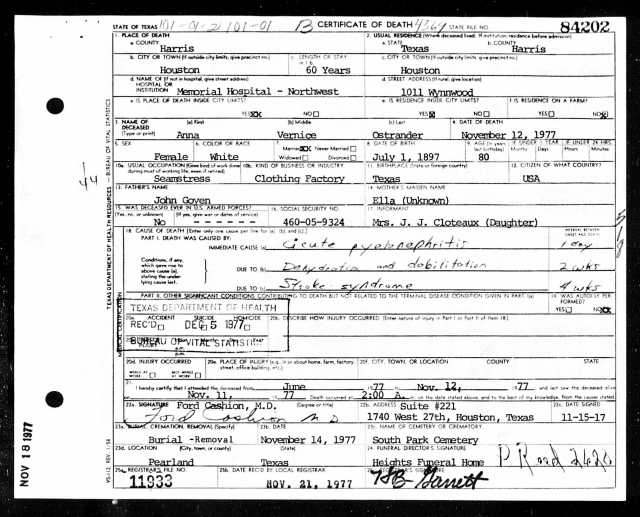 STATE OF TEXAS 101-01-2/101-01 B CERTIFICATE OF DEATH 4364 STATE FILE NO. 84202
1. PLACE OF DEATH 2. USUAL RESIDENCE (Where deceased lived. If institution, residence before admission)
a. COUNTY Harris a. STATE Texas b. COUNTY Harris
b. CITY OR TOWN (If outside city limits, give precinct no.) Houston c. LENGTH OF STAY 60 Years c. CITY OR TOWN (If outside city limits, give precinct no.) Houston
d. NAME OF (If not in hospital, give street address) HOSPITAL OR INSTITUTION Memorial Hospital - Northwest d. STREET ADDRESS (If rural, give location) 1011 Wynnwood
e. IS PLACE OF DEATH INSIDE CITY LIMITS? YES XX NO e. IS RESIDENCE INSIDE CITY LIMITS? YES NO f. IS RESIDENCE ON A FARM? YES NO
3. NAME OF DECEASED (Type or print) (a) First Anna (b) Middle Vernice (c) Last Ostrander 4. DATE OF DEATH November 12, 1977
5. SEX Female 6. COLOR OR RACE White 7. Married XX Never Married Widowed Divorced 8. DATE OF BIRTH July 1, 1897 9. AGE 80 IF UNDER 1 YEAR Months Days IF UNDER 24 HRS. Hours Min.
10a. USUAL OCCUPATION (Give kind of work done during most of working life, even if retired) Seamstress 10b. KIND OF BUSINESS OR INDUSTRY Clothing Factory 11. BIRTHPLACE (State or foreign country) Texas 12. CITIZEN OF WHAT COUNTRY? USA
13. FATHER'S NAME John Goven 14. MOTHER'S MAIDEN NAME Ella (Unknown)
15. WAS DECEASED EVER IN U.S. ARMED FORCES? (Yes, no, or unknown) No (If yes, give war or dates of service) - - - - - - 16. SOCIAL SECURITY NO. 460-05-9324 17. INFORMANT Mrs. J. J. Cloteaux (Daughter)
18. CAUSE OF DEATH (Enter only one cause per line for (a), (b), and (c).)
PART I. DEATH WAS CAUSED BY:
IMMEDIATE CAUSE (a) Acute pyelonephritis 1 day
Conditions, if any, which gave rise to above cause (a), stating the underlying cause last.
DUE TO (b) Dehydration and debilitation 2 wks
DUE TO (c) Stroke syndrome 4 wks
PART II. OTHER SIGNIFICANT CONDITIONS CONTRIBUTING TO DEATH BUT NOT RELATED TO THE TERMINAL DISEASE CONDITION GIVEN IN PART I(a) 19. WAS AUTOPSY PERFORMED? YES NO
TEXAS DEPARTMENT OF HEALTH
REC'D DEC 5 1977
BUREAU OF VITAL STATISTICS
20a. ACCIDENT SUICIDE HOMICIDE 20b. DESCRIBE HOW INJURY OCCURRED (Enter nature of injury in Part I or Part II of item 18)
20d. INJURY OCCURRED 20e. PLACE OF INJURY (e.g., in or about home, farm, factory, street, office building, etc.) 20f. CITY, TOWN, OR LOCATION COUNTY STATE
21. I hereby certify that I attended the deceased from June 1977 Nov. 12, 1977 and last saw the deceased alive
Nov. 11, 77 Death occurred at 2:00 A. on the date stated above, and to the best of my knowledge, from the causes stated
22a. SIGNATURE Ford Cashion, M.D. (Degree or title) 22b. ADDRESS Suite #221 22c. DATE SIGNED
Ford Cashion MD 1740 West 27th, Houston, Texas 11-15-17
23a. BURIAL, CREMATION, REMOVAL (Specify) Burial -Removal 23b. DATE November 14, 1977 23c. NAME OF CEMETERY OR CREMATORY South Park Cemetery
23d. LOCATION (City, town, or county) Pearland (State) Texas 24. FUNERAL DIRECTOR'S SIGNATURE Heights Funeral Home
25a. REGISTRAR'S FILE NO 11933 25b. DATE REC'D BY LOCAL REGISTRAR NOV. 21, 1977
TEXAS DEPARTMENT OF HEALTH RESOURCES - BUREAU OF VITAL STATISTICS
MEDICAL CERTIFICATION
44
NOV 18 1977